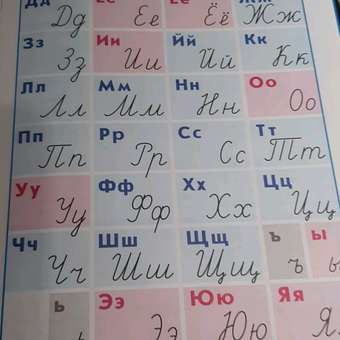 Дд Ее Ёё Жж
Дд Ее Ёё Жж
Зз Ии Йй Кк
Зз Ии Йй Кк
Лл Мм Нн Оо
Лл Мм Нн Оо
Пп Рр Сс Тт
Пп Рр Сс Тт
Уу Фф Хх Цц
Уу Фф Хх Цц
Чч Шш Щщ ъ ы
Чч Шш Щщ ъ ы
ь Ээ Юю Яя
Ээ Юю Я